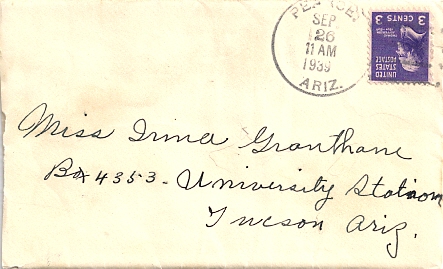 SEP
26
11 AM
1939
ARIZ.
3 CENTS 3
UNITED
STATES
POSTAGE
Miss Irma Granthane
Box 4353 - University Station
Tucson Ariz.